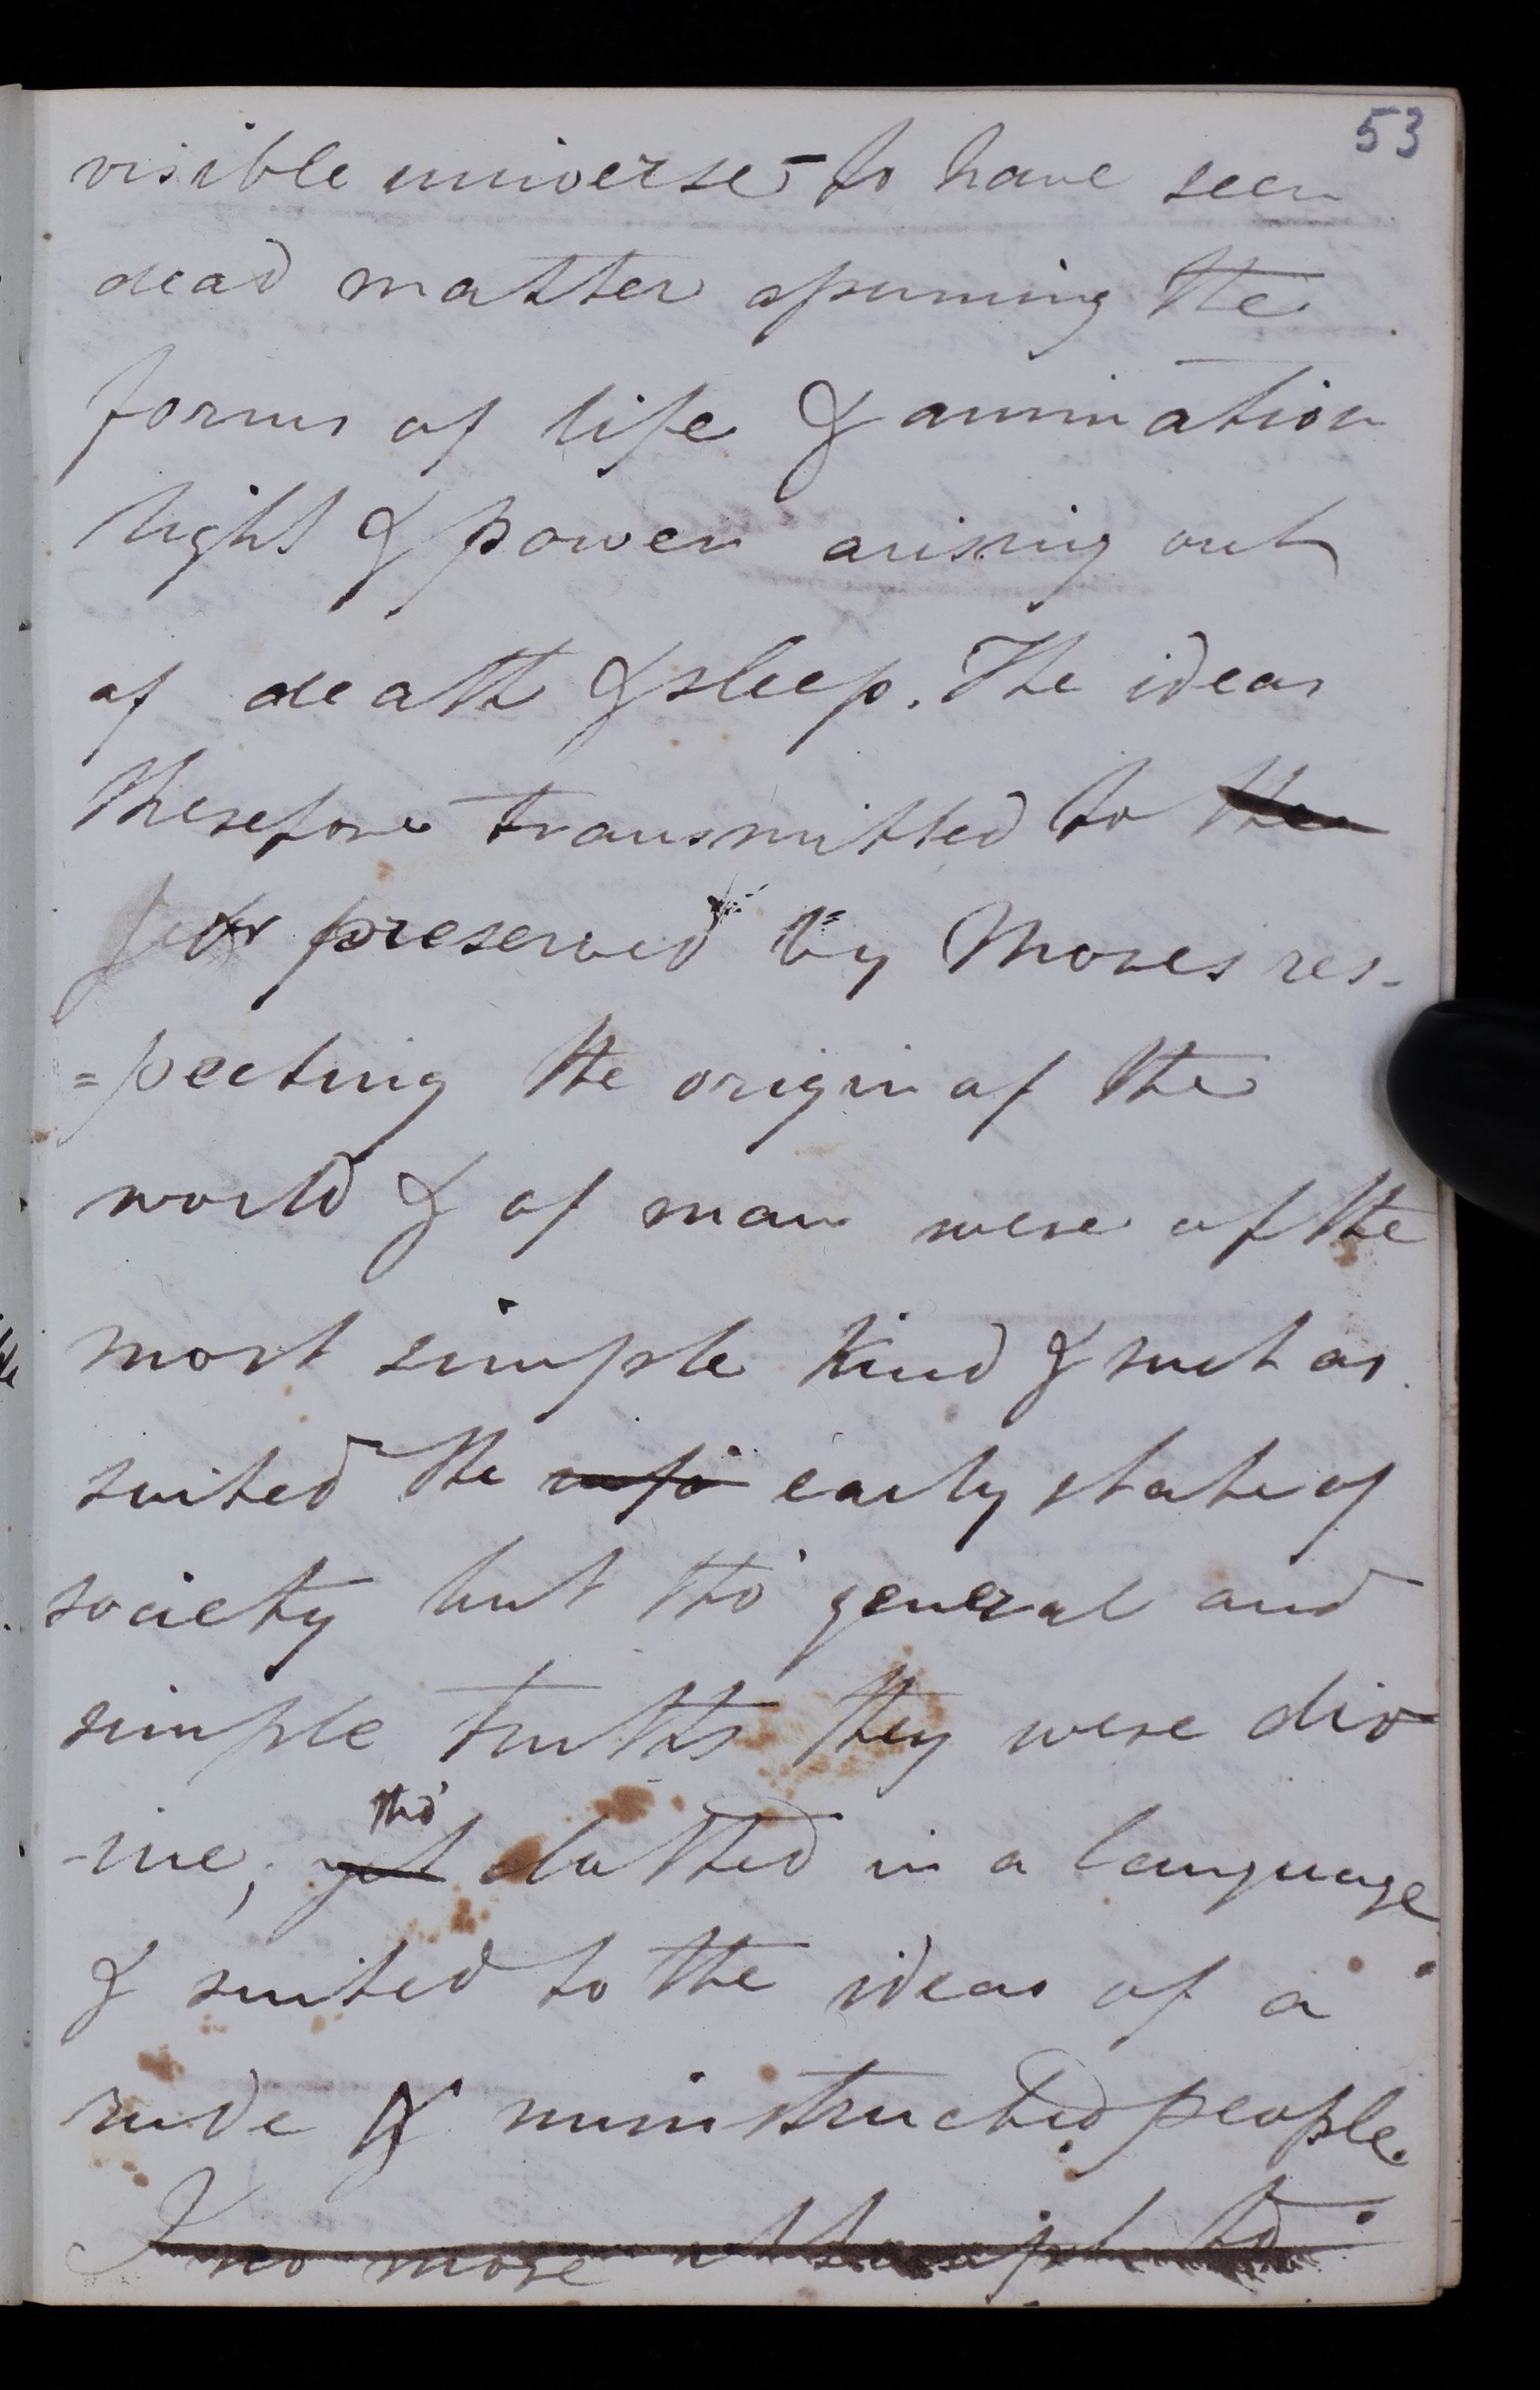 53
visible universe - to have seen
dead matter assuming the
forms of life & animation
light & power arising out
of death & sleep. The ideas
therefore transmitted to the
for preserved by Moses res-
=pecting the origin of the
world & of man were of the
most simple kind & such as
suited the early state of
society but tho' general and
simple truths they were div
-ine, yet tho' clothed in a language
& suited to the ideas of a
rude & uninstructed people.
I no more attempt to